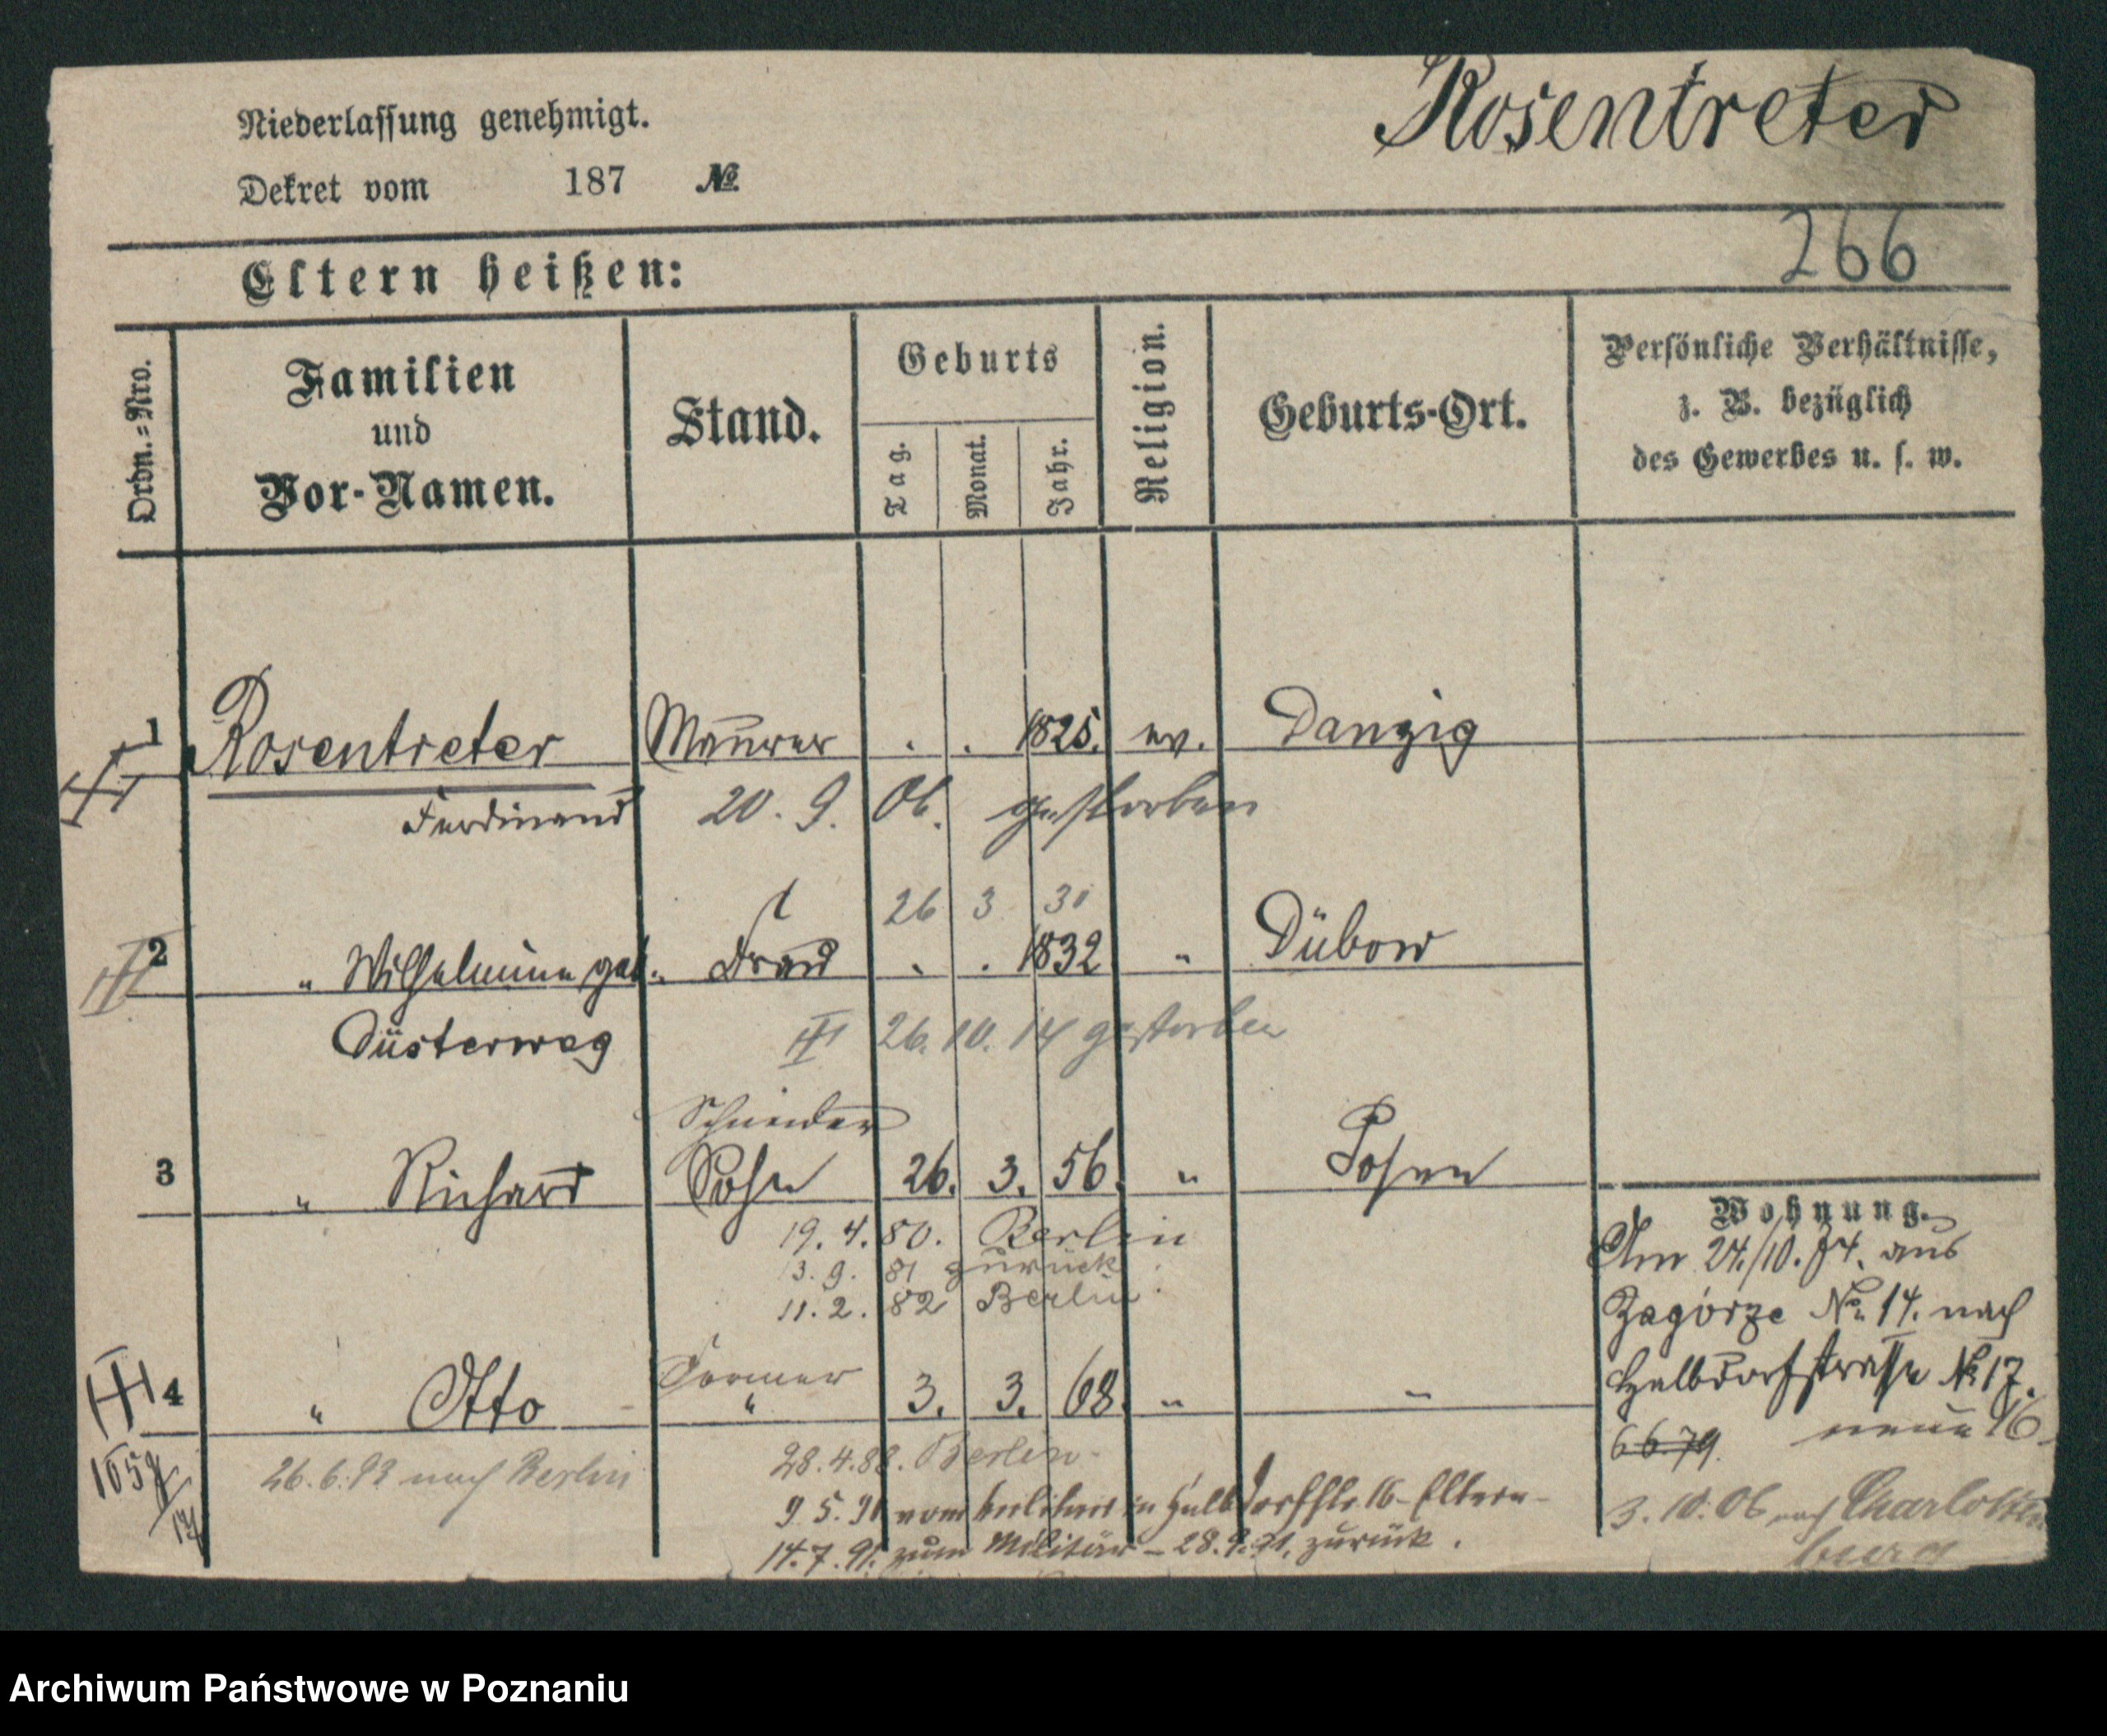 Rosentreter
Niederlassung genehmigt.
Dekret vom 187 №
266
Eltern heißen:
Ordn.-Nro.
Familien und Vor-Namen.
Stand.
Geburts
Tag.
Monat.
Jahr.
Religion.
Geburts-Ort.
Persönliche Verhältnisse,
z. B. bezüglich
des Gewerbes u. s. w.
1 Rosentreter Maurer . . 1825. ev. Danzig
Ferdinand 20. 9. 06. gestorben
26 3 30
2 " Wilhelmine geb. Frau . . 1832 " Dübow
Düsterweg 26. 10. 14 gestorben
Schneider
3 " Richard Sohn 26. 3. 56. " Posen
19. 4. 80. Berlin
13. 9. 81 zurück.
11. 2. 82 Berlin.
Former
4 " Otto " 3. 3. 68. " "
26. 6. 93 nach Berlin
28. 4. 88. Berlin
9. 5. 91 von in Halbdorfstr. 16 - Eltern -
14. 7. 91. zum Militär - 28. 9. 91. zurück.
Wohnung.
Am 24./10. 74. aus
Zagórze No 14. nach
Halbdorfstrasse No 17.
6 6. 79. neue 16
3. 10. 06 nach Charlotten
burg
Archiwum Państwowe w Poznaniu